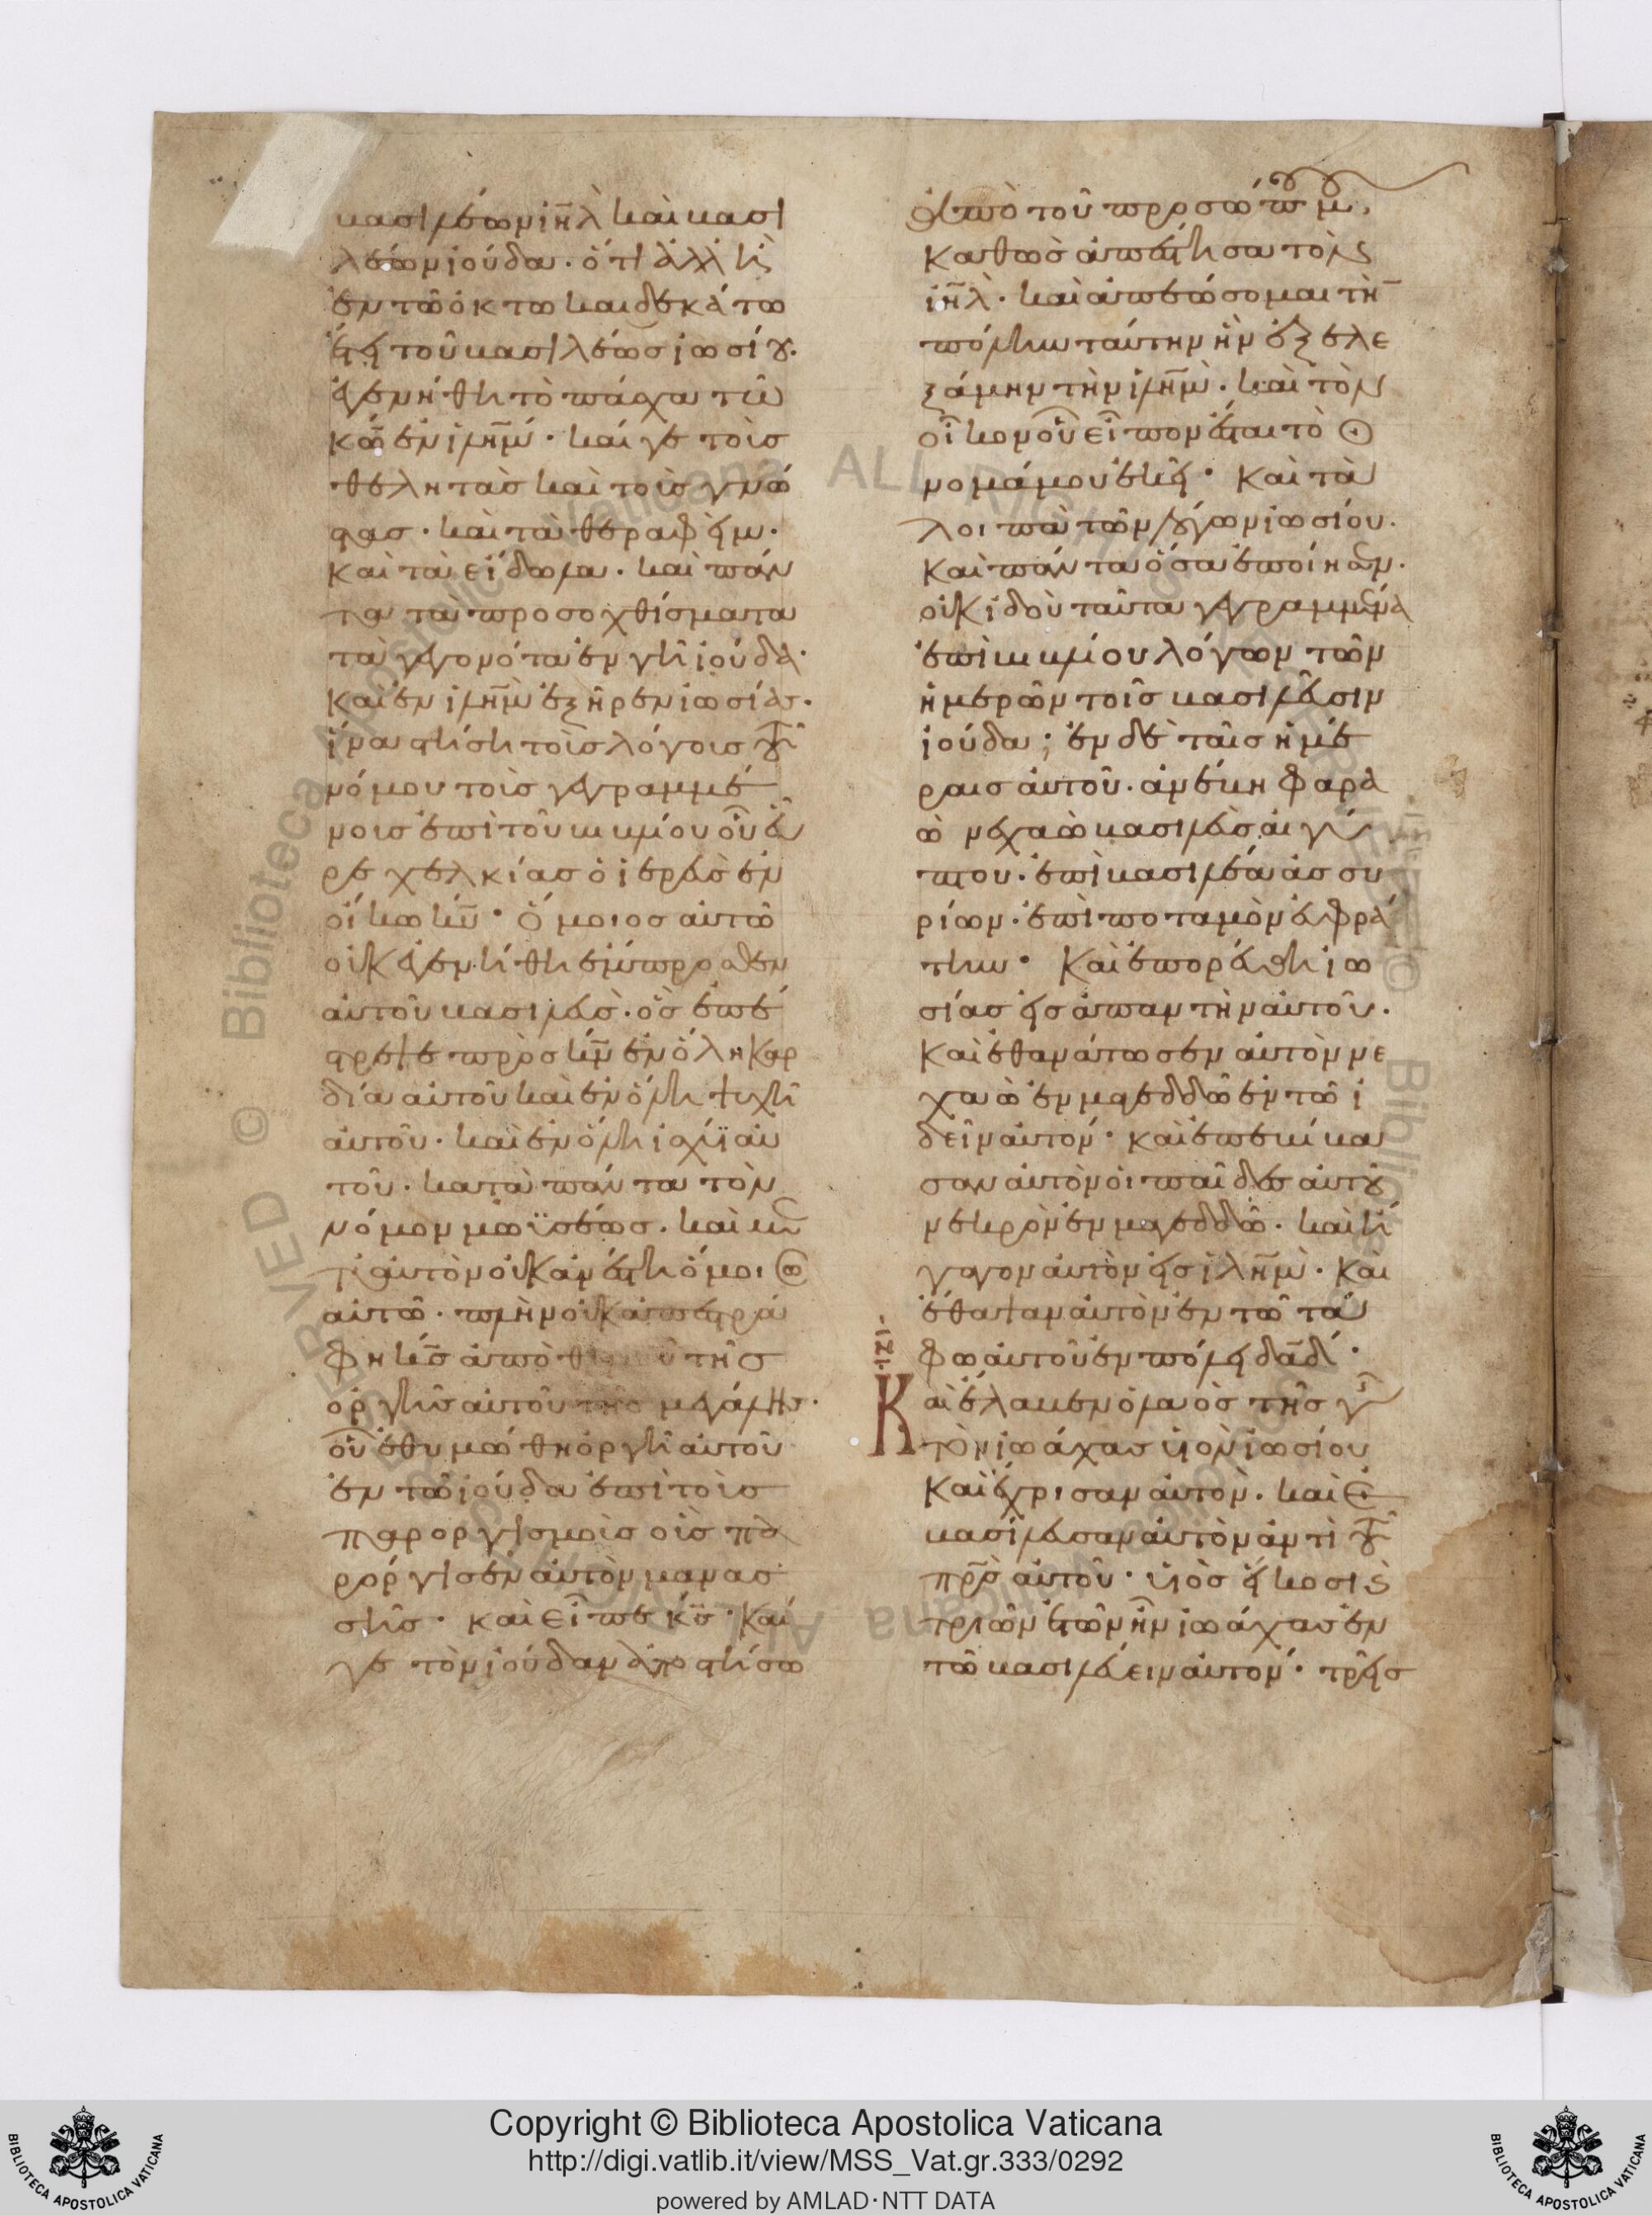 βασιλέων ιη̅λ καὶ βασι
λέων ιούδα. ὅτι ἀλλ ἢ
ἐν τῶ ὀκτω καιδεκάτω
ἔτει τοῦ βασιλέωσ ιωσίου.
ἐγενήθη τὸ πάσχα τῶ
κω̅ ἐν ιλη̅μ. καί γε τοὺσ
θελητὰσ καὶ τοὺσ γνώ
στασ. καὶ τὰ θεραφεὶμ.
καὶ τὰ εἴδωλα. καὶ πάν
τα τὰ προσοχθίσματα
τὰ γεγονότα ἐν γῆ ιούδα.
καὶ ἐν ιλη̅μ ἐξῆρεν ιωσίασ.
ἵνα στήση τοὺσ λόγουσ τοῦ
νόμου τοὺσ γεγραμμέ
νουσ ἐπὶ τοῦ βιβλίου οὗ εὗ
ρε χελκίασ ὁ ἱερεὺσ ἐν
οἴκω κυ̅. Ὅμοιοσ αὐτῶ
οὐκ ἐγενήθη ἔμπροσθεν
αὐτοῦ βασιλεὺσ. ὃσ ἐπέ
στρεψε πρὸσ κν̅ ἐν ὅλη καρ
δία αὐτοῦ καὶ ἐν ὅλη ψυχῆ
αὐτοῦ. καὶ ἐν ὅλη ισχύϊ αὐ
τοῦ. κατὰ πάντα τὸν
νόμον μωϋσέωσ. καὶ με
τ' αὐτὸν οὐκ ἀνέστη ὅμοιοσ
αὐτῶ. πλὴν οὐκ ἀπεστρά
φη κσ̅ ἀπὸ θυμοῦ τῆσ
ὀργῆσ αὐτοῦ τῆσ μεγάλησ.
οὗ ἐθυμώθη ὀργῆ αὐτοῦ
ἐν τῶ ιούδα ἐπὶ τοὺσ
παροργισμοὺσ οὓσ πα
ρόργισεν αὐτὸν μανασ
σῆσ. καὶ εἶπε κσ̅. καί
γε τὸν ιούδαν ἀποστήσω
ἀπὸ τοῦ προσώπου μου,
καθὼσ ἀπέστησα τὸν
ιη̅λ. καὶ ἀπώσομαι τὴν
πόλιν ταύτην ἣν ἐξελε
ξάμην τὴν ιλη̅μ. καὶ τὸν
οἶκον οὗ εἶπον ἔσται τὸ ὄ
νομά μου ἐκεῖ. Καὶ τὰ
λοιπὰ τῶν λόγων ιωσίου.
καὶ πάντα ὅσα ἐποίησεν.
οὐκ ιδοὺ ταῦτα γεγραμμένα
ἐπὶ βιβλίου λόγων τῶν
ἡμερῶν τοῖσ βασιλεῦσιν
ιούδα; ἐν δὲ ταῖσ ἡμέ
ραισ αὐτοῦ. ἀνέβη φαρα
ὼ νεχαὼ βασιλεὺσ αἰγύ
πτου. ἐπὶ βασιλέα ἀσσυ
ρίων. ἐπὶ ποταμὸν εὐφρά
την. Καὶ ἐπορεύθη ιω
σίασ εἰσ ἀπαντὴν αὐτοῦ.
Καὶ ἐθανάτωσεν αὐτὸν νε
χαὼ ἐν μαγεδδῶ ἐν τῶ ι
δεῖν αὐτόν. καὶ ἐπεβίβα
σαν αὐτὸν οἱ παῖδεσ αὐτοῦ
νεκρὸν ἐν μαγεδδῶ. καὶ ἤ
γαγον αὐτὸν εἰσ ιλη̅μ. καὶ
ἔθαψαν αὐτὸν ἐν τῶ τά
φω αὐτοῦ ἐν πόλει δα̅δ.
Καὶ ἔλαβεν ὁ λαὸσ τῆσ γῆσ
τὸν ιωάχασ υἱὸν ιωσίου
καὶ ἔχρισαν αὐτὸν. καὶ ἐ
βασίλευσαν αὐτὸν ἀντὶ τοῦ
πρ̅σ αὐτοῦ. υἱὸσ εἴκοσι ϛ
τριῶν ἐτῶν ἦν ιωάχασ ἐν
τῶ βασιλεύειν αὐτόν. τρεῖσ
Copyright © Biblioteca Apostolica Vaticana
http://digi.vatlib.it/view/MSS_Vat.gr.333/0292
powered by AMLAD·NTT DATA